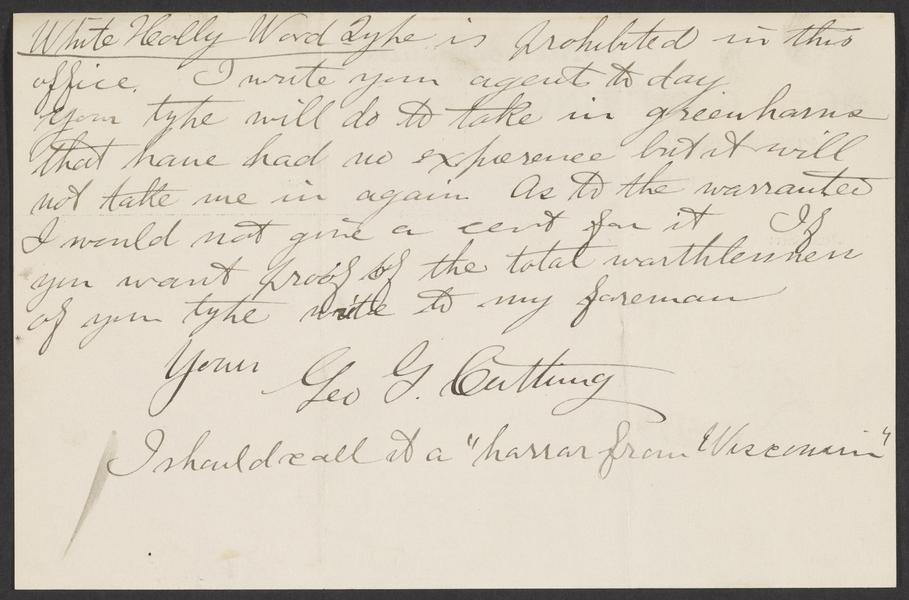 White Holly Word Type is prohibited in this
office. I write your agent to day
Your type will do to take in greenhorns
that have had no experence but it will
not take me in again As to the warranted
I would not give a cent for it If
you want proof of the total worthlessnen
of your type write to my foreman
Yours
Geo G. Cutting
I should call it a "horror from "Wisconsin"